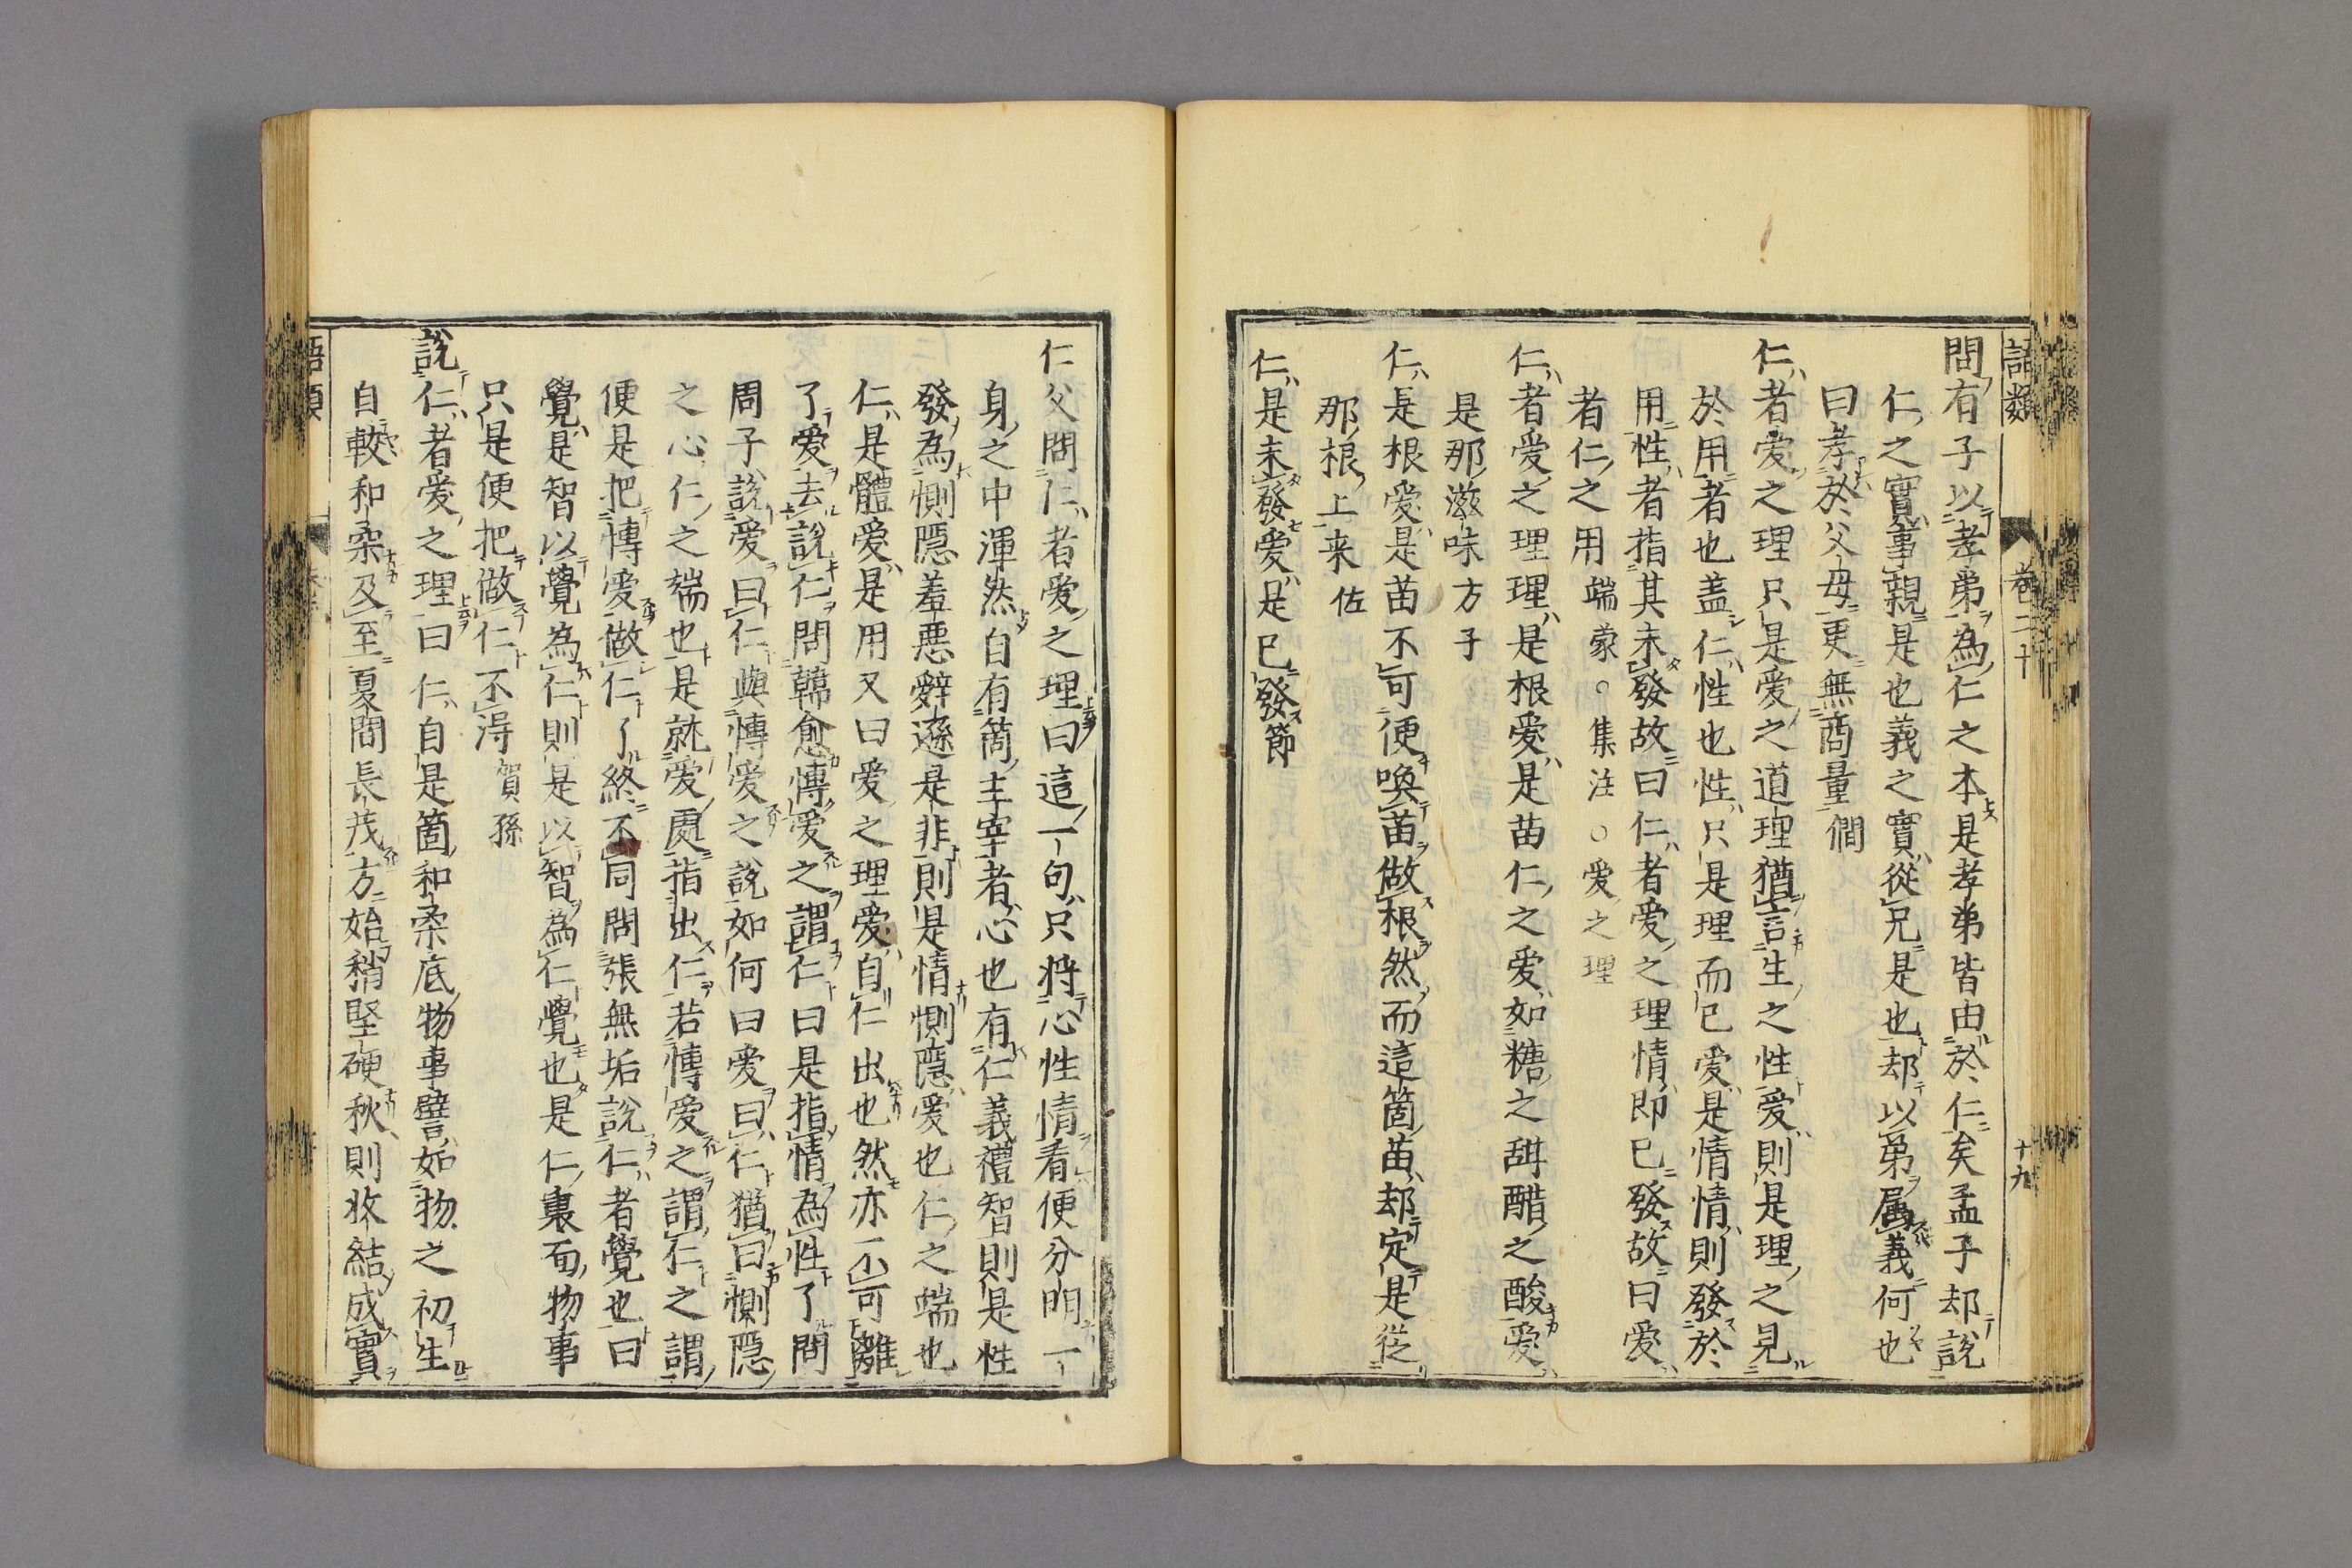 語類　卷二十　十九
問有子以孝弟為仁之本是孝弟皆由於仁矣孟子却說
仁之實事親是也義之實從兄是也却以弟属義何也
曰孝於父母更無商量 僩
仁者愛之理只是愛之道理猶言生之性愛則是理之見
於用者也盖仁性也性只是理而已愛是情情則發於
用性者指其未發故曰仁者愛之理情即已發故曰愛
者仁之用 端蒙○集注○愛之理
仁者愛之理理是根愛是苗仁之愛如糖之甜醋之酸愛
是那滋味 方子
仁是根愛是苗不可便喚苗做根然而這箇苗却定是從
那根上来 佐
仁是未發愛是已發 節
仁父問仁者愛之理曰這一句只将心性情看便分明一
身之中渾然自有箇主宰者心也有仁義禮智則是性
發為惻隠羞悪辭遜是非則是情惻隠愛也仁之端也
仁是體愛是用又曰愛之理愛自仁出也然亦不可離
了愛去說仁問韓愈愽愛之謂仁曰是指情為性了問
周子說愛曰仁與愽愛之說如何曰愛曰仁猶曰惻隠
之心仁之端也是就愛處指出仁若愽愛之謂仁之謂
便是把愽愛做仁了終不同問張無垢說仁者覺也曰
覺是智以覺為仁則是以智為仁覺也是仁裏面物事
只是便把做仁不得 賀孫
說仁者愛之理曰仁自是箇和柔底物事譬如物之初生
自較和柔及至夏間長茂方始稍堅硬秋則收結成實
語類